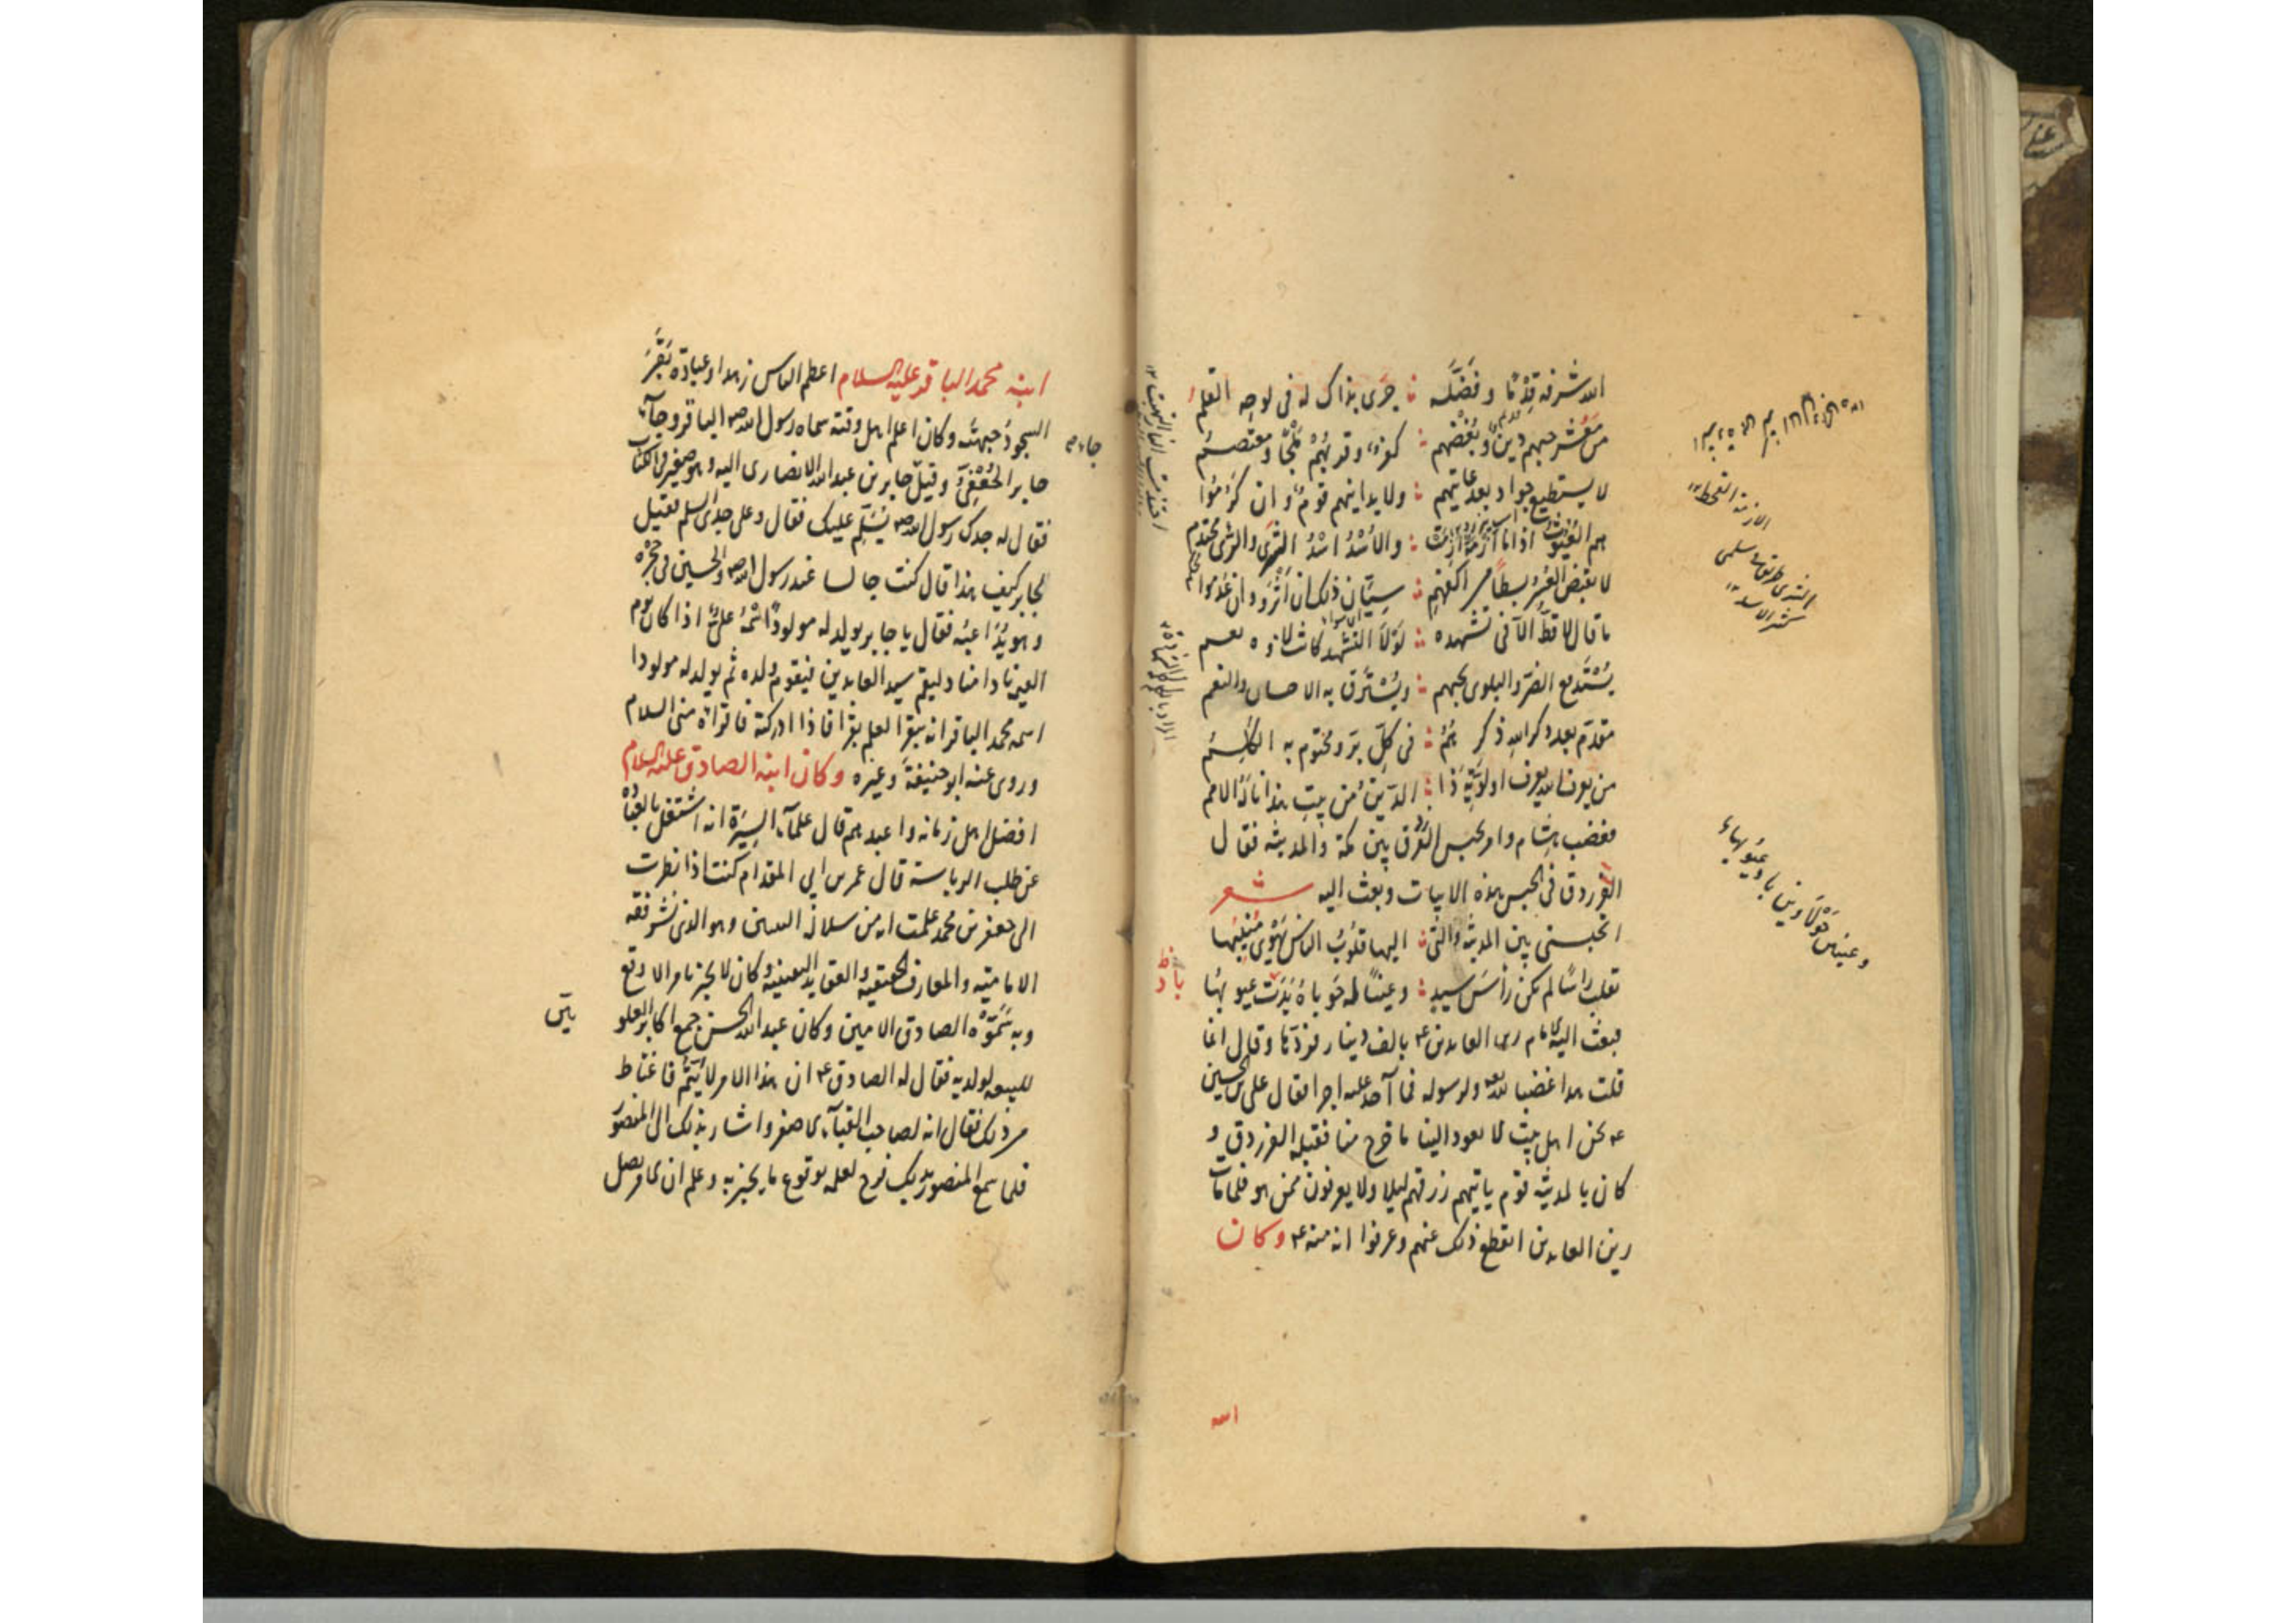 الله شرفه قِدْمًا وفَضَّله ؞ جَرَى بذاك له فى لوحِه القلمُ
من مَعْشرٍ حبهم دينٌ وبُغْضُهم ؞ كفرٌ وقربُهُمْ مَلْجًا ومعتصَمُ
لا يستطيع جواد بعد غايتهم ؞ ولا يدانيهم قومٌ وان كَرُمُوا
هم الغُيُوثُ اذا ما أَزْمَةٌ أزَمَتْ ؞ والأُسْدُ اُسْدُ الشَّرَى والشرى محتدم
لا يقبض العُسْرُ بسطًا من اكفهم ؞ سِيَّانِ ذلك ان أَثْرَوْ وان عَدِمُوا
ما قال لا قطُّ الّا فى تشهده ؞ لَوْلَا التشهد كانت لاؤه نعم
يُسْتَدفع الضرّ والبلوى بحبهم ؞ ويُسْتَرَقّ به الاحسان والنعم
مقدّم بعد ذكر اللهِ ذكرهُمُ ؞ فى كلّ بَرّ ومختوم به الكَلِمُ
من يعرف الله يعرف اولوَيَّةَ ذَا ؞ الدّينُ من بيتِ هذا نالَهُ الامم
فغضب هشام وامر بحبس الفرزدق بين مكة والمدينة فقال
الفرزدق فى الحبس هذه الابيات وبعث اليه شعر
اتحبسنى بين المدينة والّتى ؞ اليها قلوبُ الناس يَهْوِى مُنيبُها
تقلب راسًا لم يكن رأسَ سيدٍ ؞ وعينًا له حَوْباءُ بَدَتْ عيوبُها
فبعث اليه الامام زين العابدين ع بالف دينار فردّها وقال انما
قلت هذا غضبا لله ولرسوله فما آخذ عليه اجرا فقال على بن الحسين
ع نحن اهل بيت لا يعود الينا ما خرج منا فقبله الفرزدق و
كان بالمدينة قوم ياتيهم رزقهم ليلا ولا يعرفون ممن هو فلما مات
زين العابدين انقطع ذلك عنهم وعرفوا انه منه ع وكان
الازمة القحط
الشرى طريق سلمى
كثير الاسد
ابنه محمد الباقر عليه السلام اعظم الناس زهدا وعبادة بَقَّرَ
السجودُ جبهتَه وكان اعلم اهل وقته سماه رسول الله ص الباقر وجآء
جابر الجُعْفِىُّ وقيل جابر بن عبد الله الانصارى اليه وهو صغير فى الكتاب
فقال له جدك رسول الله ص يُسَلِّم عليك فقال وعلى جدى السلم فقيل
لجابر كيف هذا قال كنت جالسا عند رسول الله ص والحسين فى حجره
وهو يُدَاعبُه فقال يا جابر يولد له مولودٌ اسْمُهُ علىٌّ اذا كان يوم
القيمة نادا مناد ليقم سيد العابدين فيقوم ولده ثم يولد له مولودا
اسمه محمد الباقر انه يبقر العلم بقرا فاذا ادركته فاقراه منى السلام
وروى عنه ابو حنيفةَ وغيره وكان ابنه الصادق عليه السلام
افضل اهل زمانه واعبدهم قال علمآء السِيَرة انه اشتغل بالعبادة
عن طلب الرياسة قال عمر بن ابى المقدام كنت اذا نظرت
الى جعفر بن محمد علمت انه من سلالة النبيين وهو الذى نشر فقه
الامامية والمعارف الحقيقية والعقايد اليقينية وكان لا يخبر بامر الا وقع
وبه سَمَّوْهُ الصادق الامين وكان عبد الله الحسن جمع اكابر العلو
للبيعه لولديه فقال له الصادق ع ان هذا الامر لا يَتِمُّ فاغتاظ
من ذلك فقال انه لصاحب القبآء الاصفر واشار بذلك الى المنصور
فلما سمع المنصور بذلك فرح لعلمه بوقوع ما يخبر به وعلم ان الامر يصل
يين